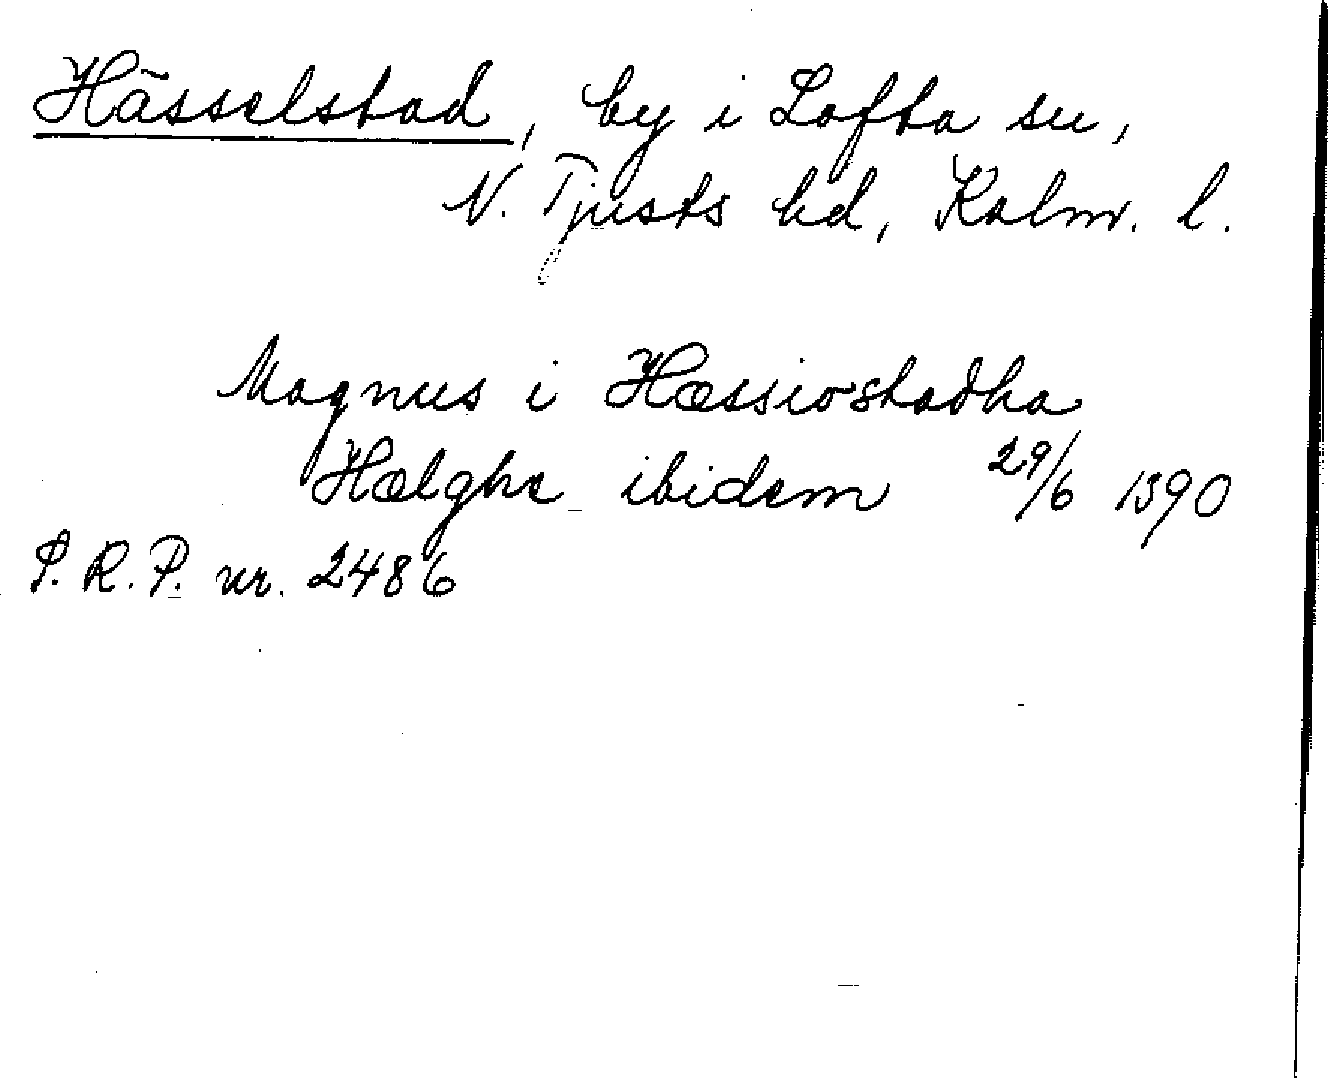 Hässelstad, by i Lofta sn,
N. Tjusts hd, Kalm. l.
Magnus i Hæssiostadha
Hælghe ibidem 29/6 1390
P. R. P. nr. 2486